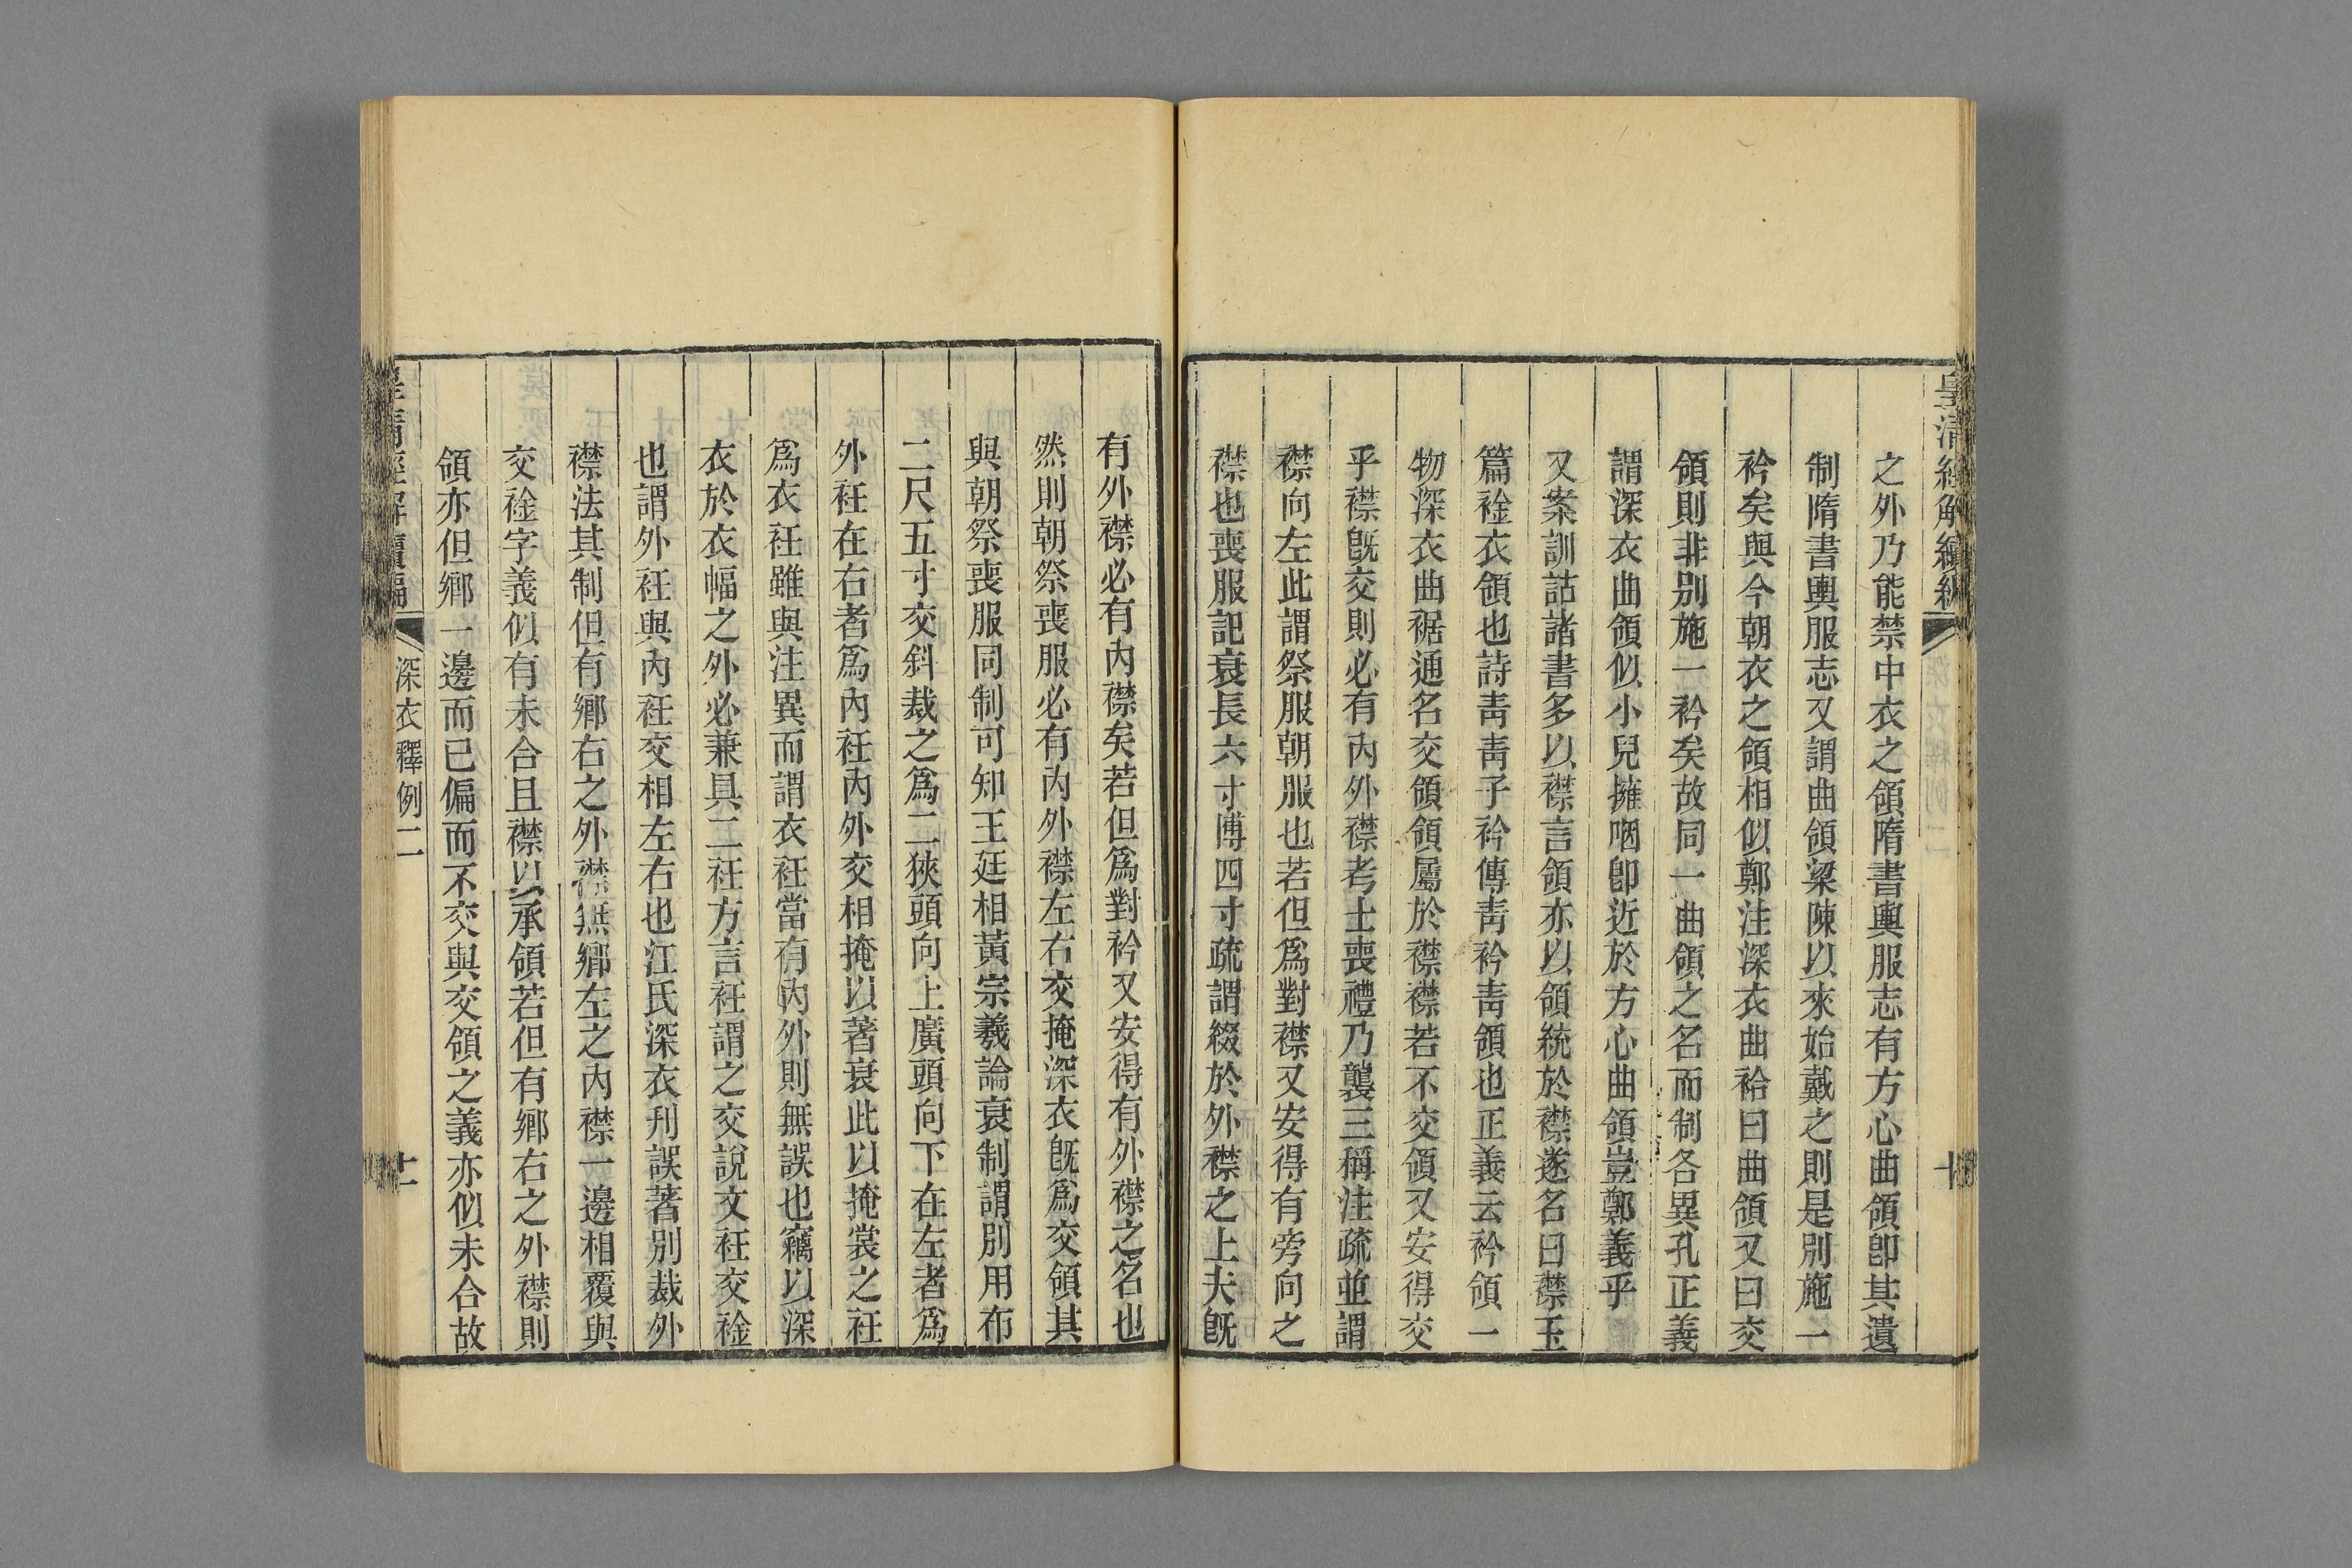 皇清經解續編
十
之外乃能禁中衣之領隋書輿服志有方心曲領卽其遺
制隋書輿服志又謂曲領梁陳以來始戴之則是別施一
衿矣與今朝衣之領相似鄭注深衣曲袷曰曲領又曰交
領則非别施一衿矣故同一曲領之名而制各異孔正義
謂深衣曲領似小兒擁咽卽近於方心曲領豈鄭義乎
又案訓詁諸書多以襟言領亦以領統於襟遂名曰襟玉
篇䘳衣領也詩靑靑子衿傳靑衿靑領也正義云衿領一
物深衣曲裾通名交領領屬於襟襟若不交領又安得交
乎襟旣交則必有內外襟考士喪禮乃襲三稱注疏並謂
襟向左此謂祭服朝服也若但爲對襟又安得有旁向之
襟也喪服記衰長六寸博四寸疏謂綴於外襟之上夫旣
有外襟必有內襟矣若但爲對衿又安得有外襟之名也
然則朝祭喪服必有內外襟左右交掩深衣旣爲交領其
與朝祭喪服同制可知王廷相黃宗羲論衰制謂別用布
二尺五寸交斜裁之爲二狹頭向上廣頭向下在左者爲
外衽在右者爲內衽內外交相掩以著衰此以掩裳之衽
爲衣衽雖與注異而謂衣衽當有內外則無誤也竊以深
衣於衣幅之外必兼具二衽方言衽謂之交說文衽交䘳
也謂外衽與內衽交相左右也江氏深衣刋誤著別裁外
襟法其制但有鄉右之外襟無鄉左之內襟一邊相覆與
交䘳字義似有未合且襟以承領若但有鄉右之外襟則
領亦但鄉一邊而已偏而不交與交領之義亦似未合故
皇清經解續編
深衣釋例二
十一